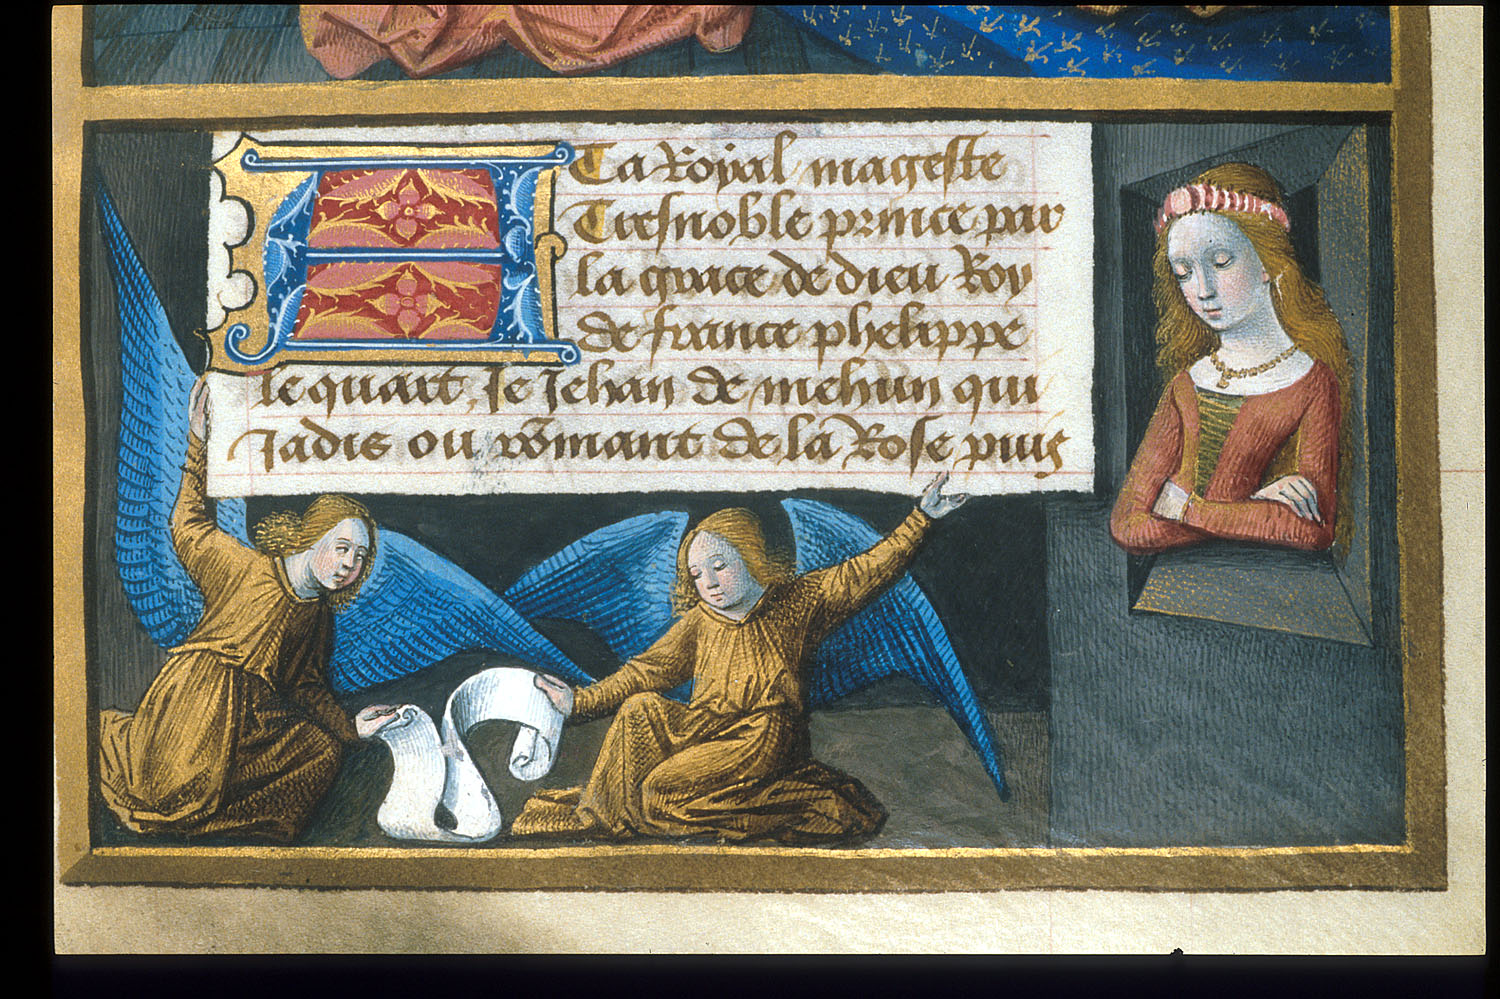 A Ta Royal mageste
Tresnoble prince par
la grace de dieu Roy
de france phelippe
le quart, Je Jehan de mehun qui
Jadis ou rõmant de la Rose puis